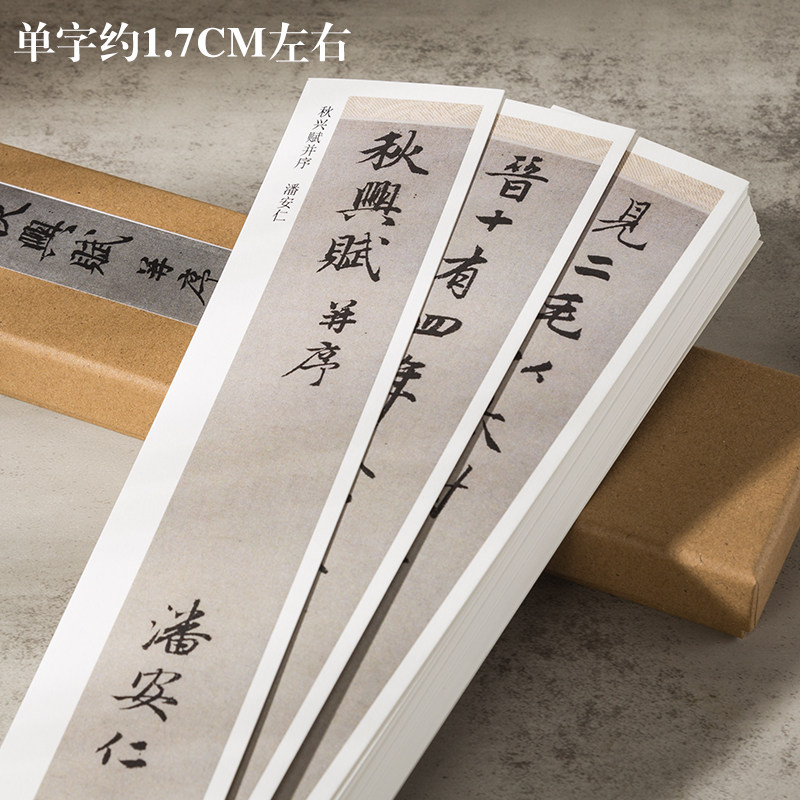 单字约1.7CM左右
秋兴赋并序 潘安仁
秋興賦 并序
潘安仁
晉十有四年
見二毛以太
興賦 并序